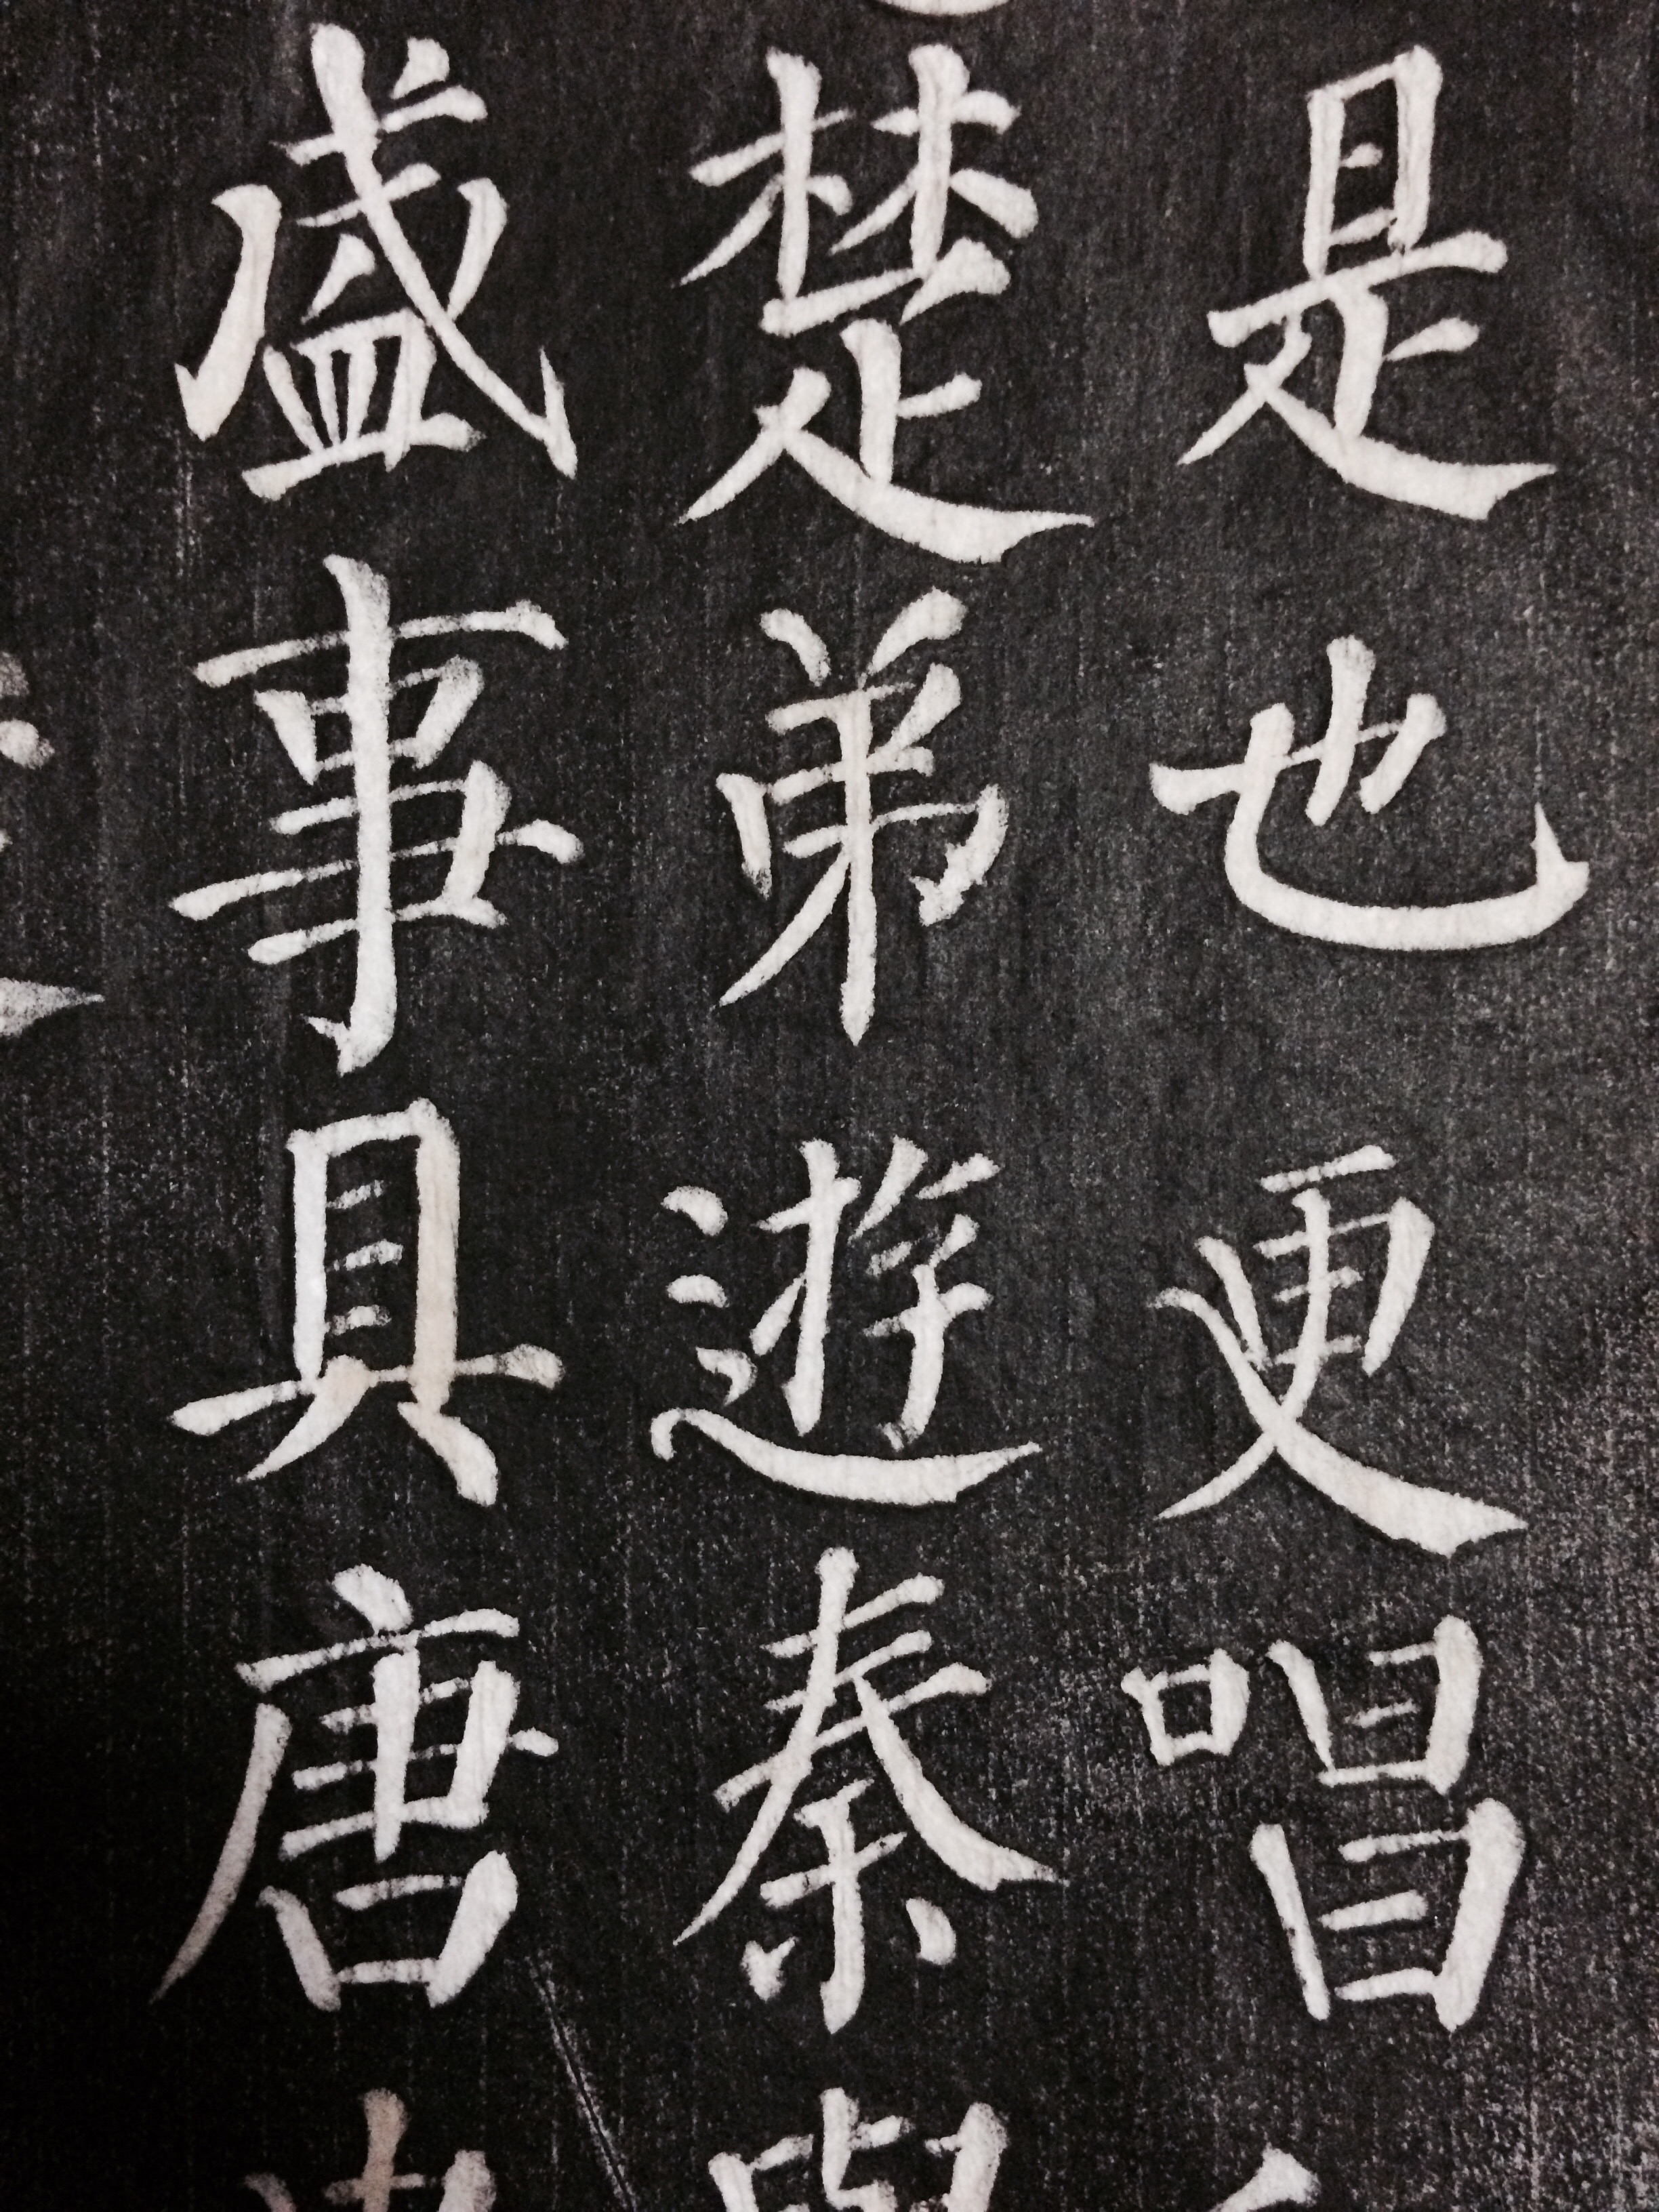 是也更唱
楚弟遊秦
盛事具唐